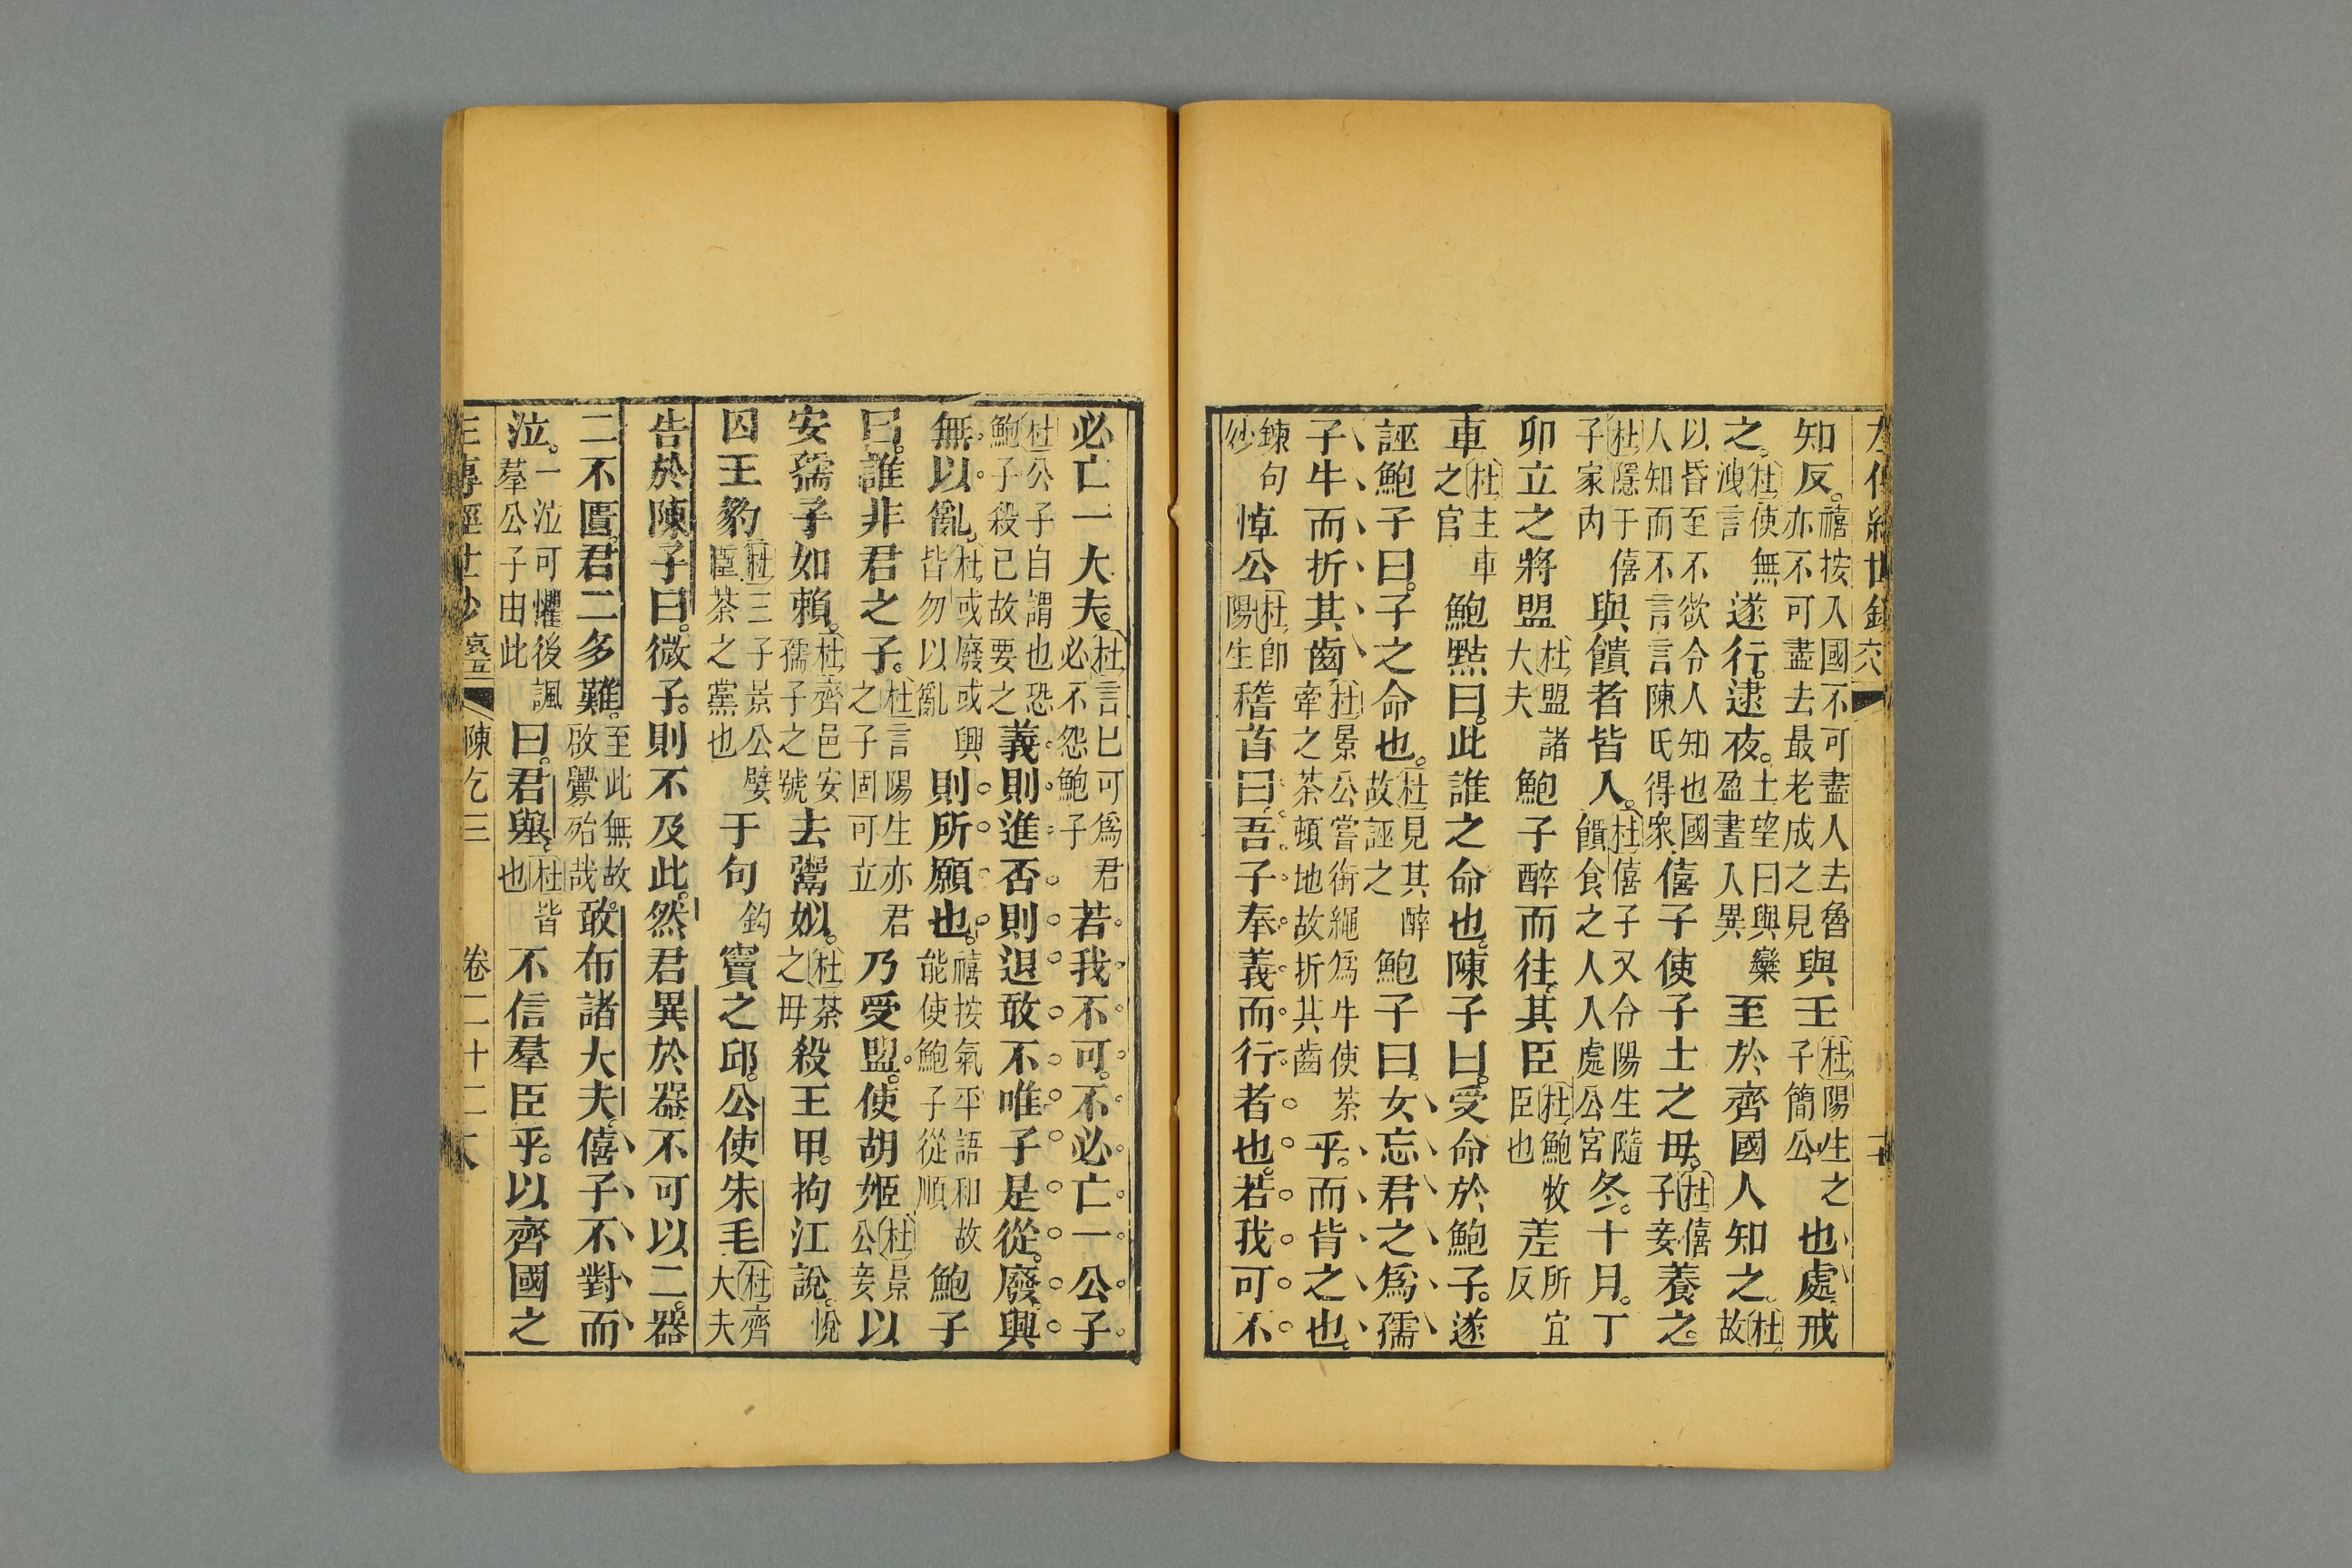 知反。禧按入國不可盡人去魯亦不可盡去最老成之見與壬杜陽生之子簡公也處戒
之。杜使無洩言遂行。逮夜。士望曰與欒盈晝入異至於齊國人知之。杜故
以昏至不欲令人知也國人知而不言言陳氏得衆僖子使子士之毋。杜僖子妾養之。
杜隱于僖子家内與饋者皆入。杜僖子又令陽生隨饋食之人入處公宮冬。十月。丁
卯立之將盟杜盟諸大夫鮑子醉而往。其臣杜鮑牧臣也差所宜反
車杜主車之官鮑點曰。此誰之命也。陳子曰。受命於鮑子。遂
誣鮑子曰。子之命也。杜見其醉故誣之鮑子曰。女忘君之爲孺
子牛而折其齒杜景公嘗銜繩爲牛使荼牽之荼頓地故折其齒乎。而背之也。
鍊句妙悼公杜卽陽生稽首曰。吾子奉義而行者也。若我可不
必亡一大夫。杜言已可爲君必不怨鮑子若我不可。不必亡一公子
杜公子自謂也恐鮑子殺己故要之義則進否則退敢不唯子是從。廢興
無以亂。杜或廢或興皆勿以亂則所願也。禧按氣平語和故能使鮑子從順鮑子
曰。誰非君之子。杜言陽生亦君之子固可立乃受盟。使胡姬杜景公妾以
安孺子如賴。杜齊邑安孺子之號去鬻姒。杜荼之毋殺王甲。拘江說。悅
囚王豹杜三子景公嬖臣荼之黨也于句鈎竇之邱。公使朱毛杜齊大夫
告於陳子曰。微子。則不及此。然君異於器不可以二。器
二不匱。君二多難。至此無故啟釁殆哉敢布諸大夫。僖子不對而
泣。一泣可懼後諷羣公子由此曰。君舉杜皆也不信羣臣乎。以齊國之
陳乞三 卷二十二